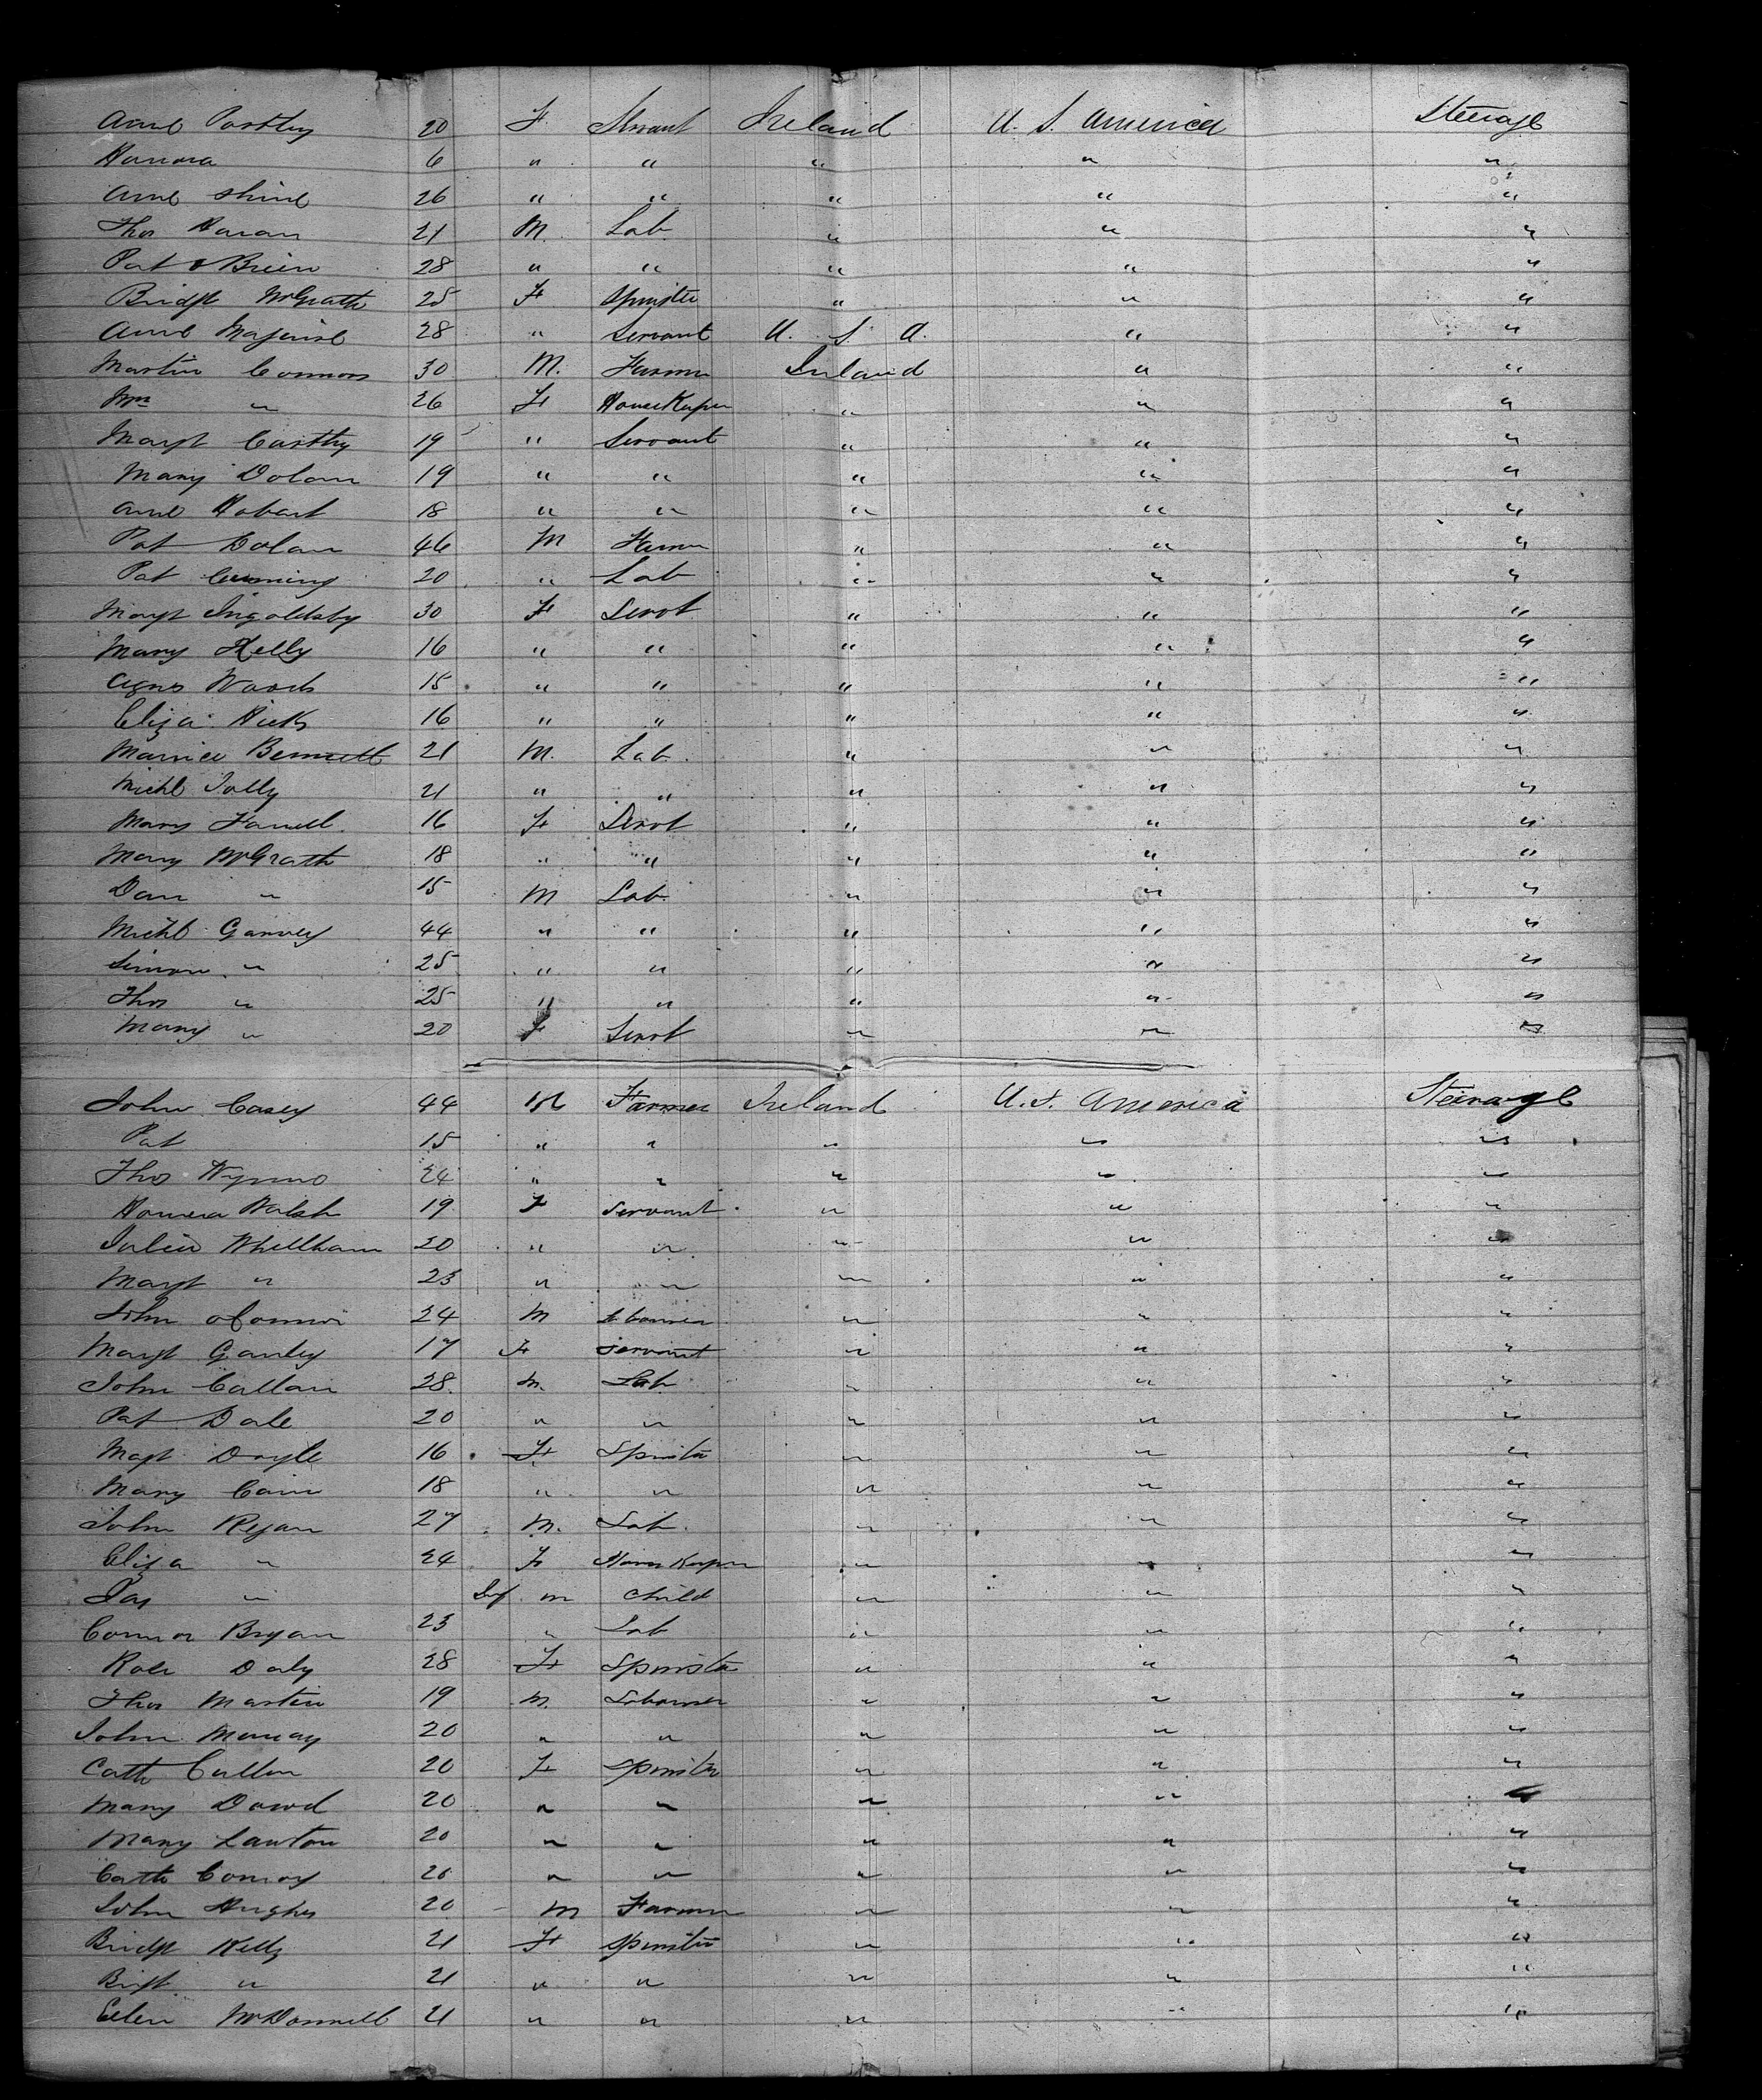 Anne 20 F. Servant Ireland U. S. America Steerage
Hanora 6 " " " " "
Anne Shine 26 " " " " "
Thos Horan 21 M. Lab " " "
Pat OBrien 28 " " " " "
Bridgt McGrath 25 F Spinster " " "
Anne Maguire 28 " Servant U. S. A. " "
Martin Connors 30 M. Farmer Ireland " "
Mrs " 26 F HouseKeeper " " "
Margt Carthy 19 " Servant " " "
Mary Dolan 19 " " " " "
Anne Hobart 18 " " " " "
Pat Dolan 46 M Farmer " " "
Pat Cumming 20 " Lab " " "
Margt Ingoldsby 30 F Servt " " "
Mary Kelly 16 " " " " "
Agnes Woods 15 " " " " "
Eliza Hicks 16 " " " " "
Maurice Bennett 21 M. Lab. " " "
Michl Jolly 21 " " " " "
Mary Farrell 16 F Servt " " "
Mary McGrath 18 " " " " "
Dan " 15 M Lab. " " "
Michl Garvey 44 " " " " "
Simon " 25 " " " " "
Thos " 25 " " " " "
Mary " 20 F Servt " " "
John Casey 44 M Farmer Ireland U.S. America Steerage
Pat 15 " " " " "
Thos Wynne 24 " " " " "
Honora Walsh 19 F Servant " " "
Julia Whellham 20 " " " " "
Margt " 23 " " " " "
John oConnor 24 M Labourer " " "
Margt Ganley 17 F Servant " " "
John Callan 28 M. Lab " " "
Pat Dale 20 " " " " "
Magt Doyle 16 F Spinster " " "
Mary Cain 18 " " " " "
John Regan 27 M. Lab. " " "
Eliza " 24 F HouseKeeper " " "
Jas " Inf m Child " " "
Connor Bryan 23 " Lab " " "
Daly 28 F Spinster " " "
Thos Martin 19 M. Labourer " " "
John Murray 20 " " " " "
Cath Cullen 20 F Spinster " " "
Mary Dowd 20 " " " " "
Mary Lawton 20 " " " " "
Cath Conroy 20 " " " " "
John Hughes 20 M Farmer " " "
Bridgt Kelly 21 F Spinster " " "
" 21 " " " " "
Ellen McDonnell 21 " " " " "